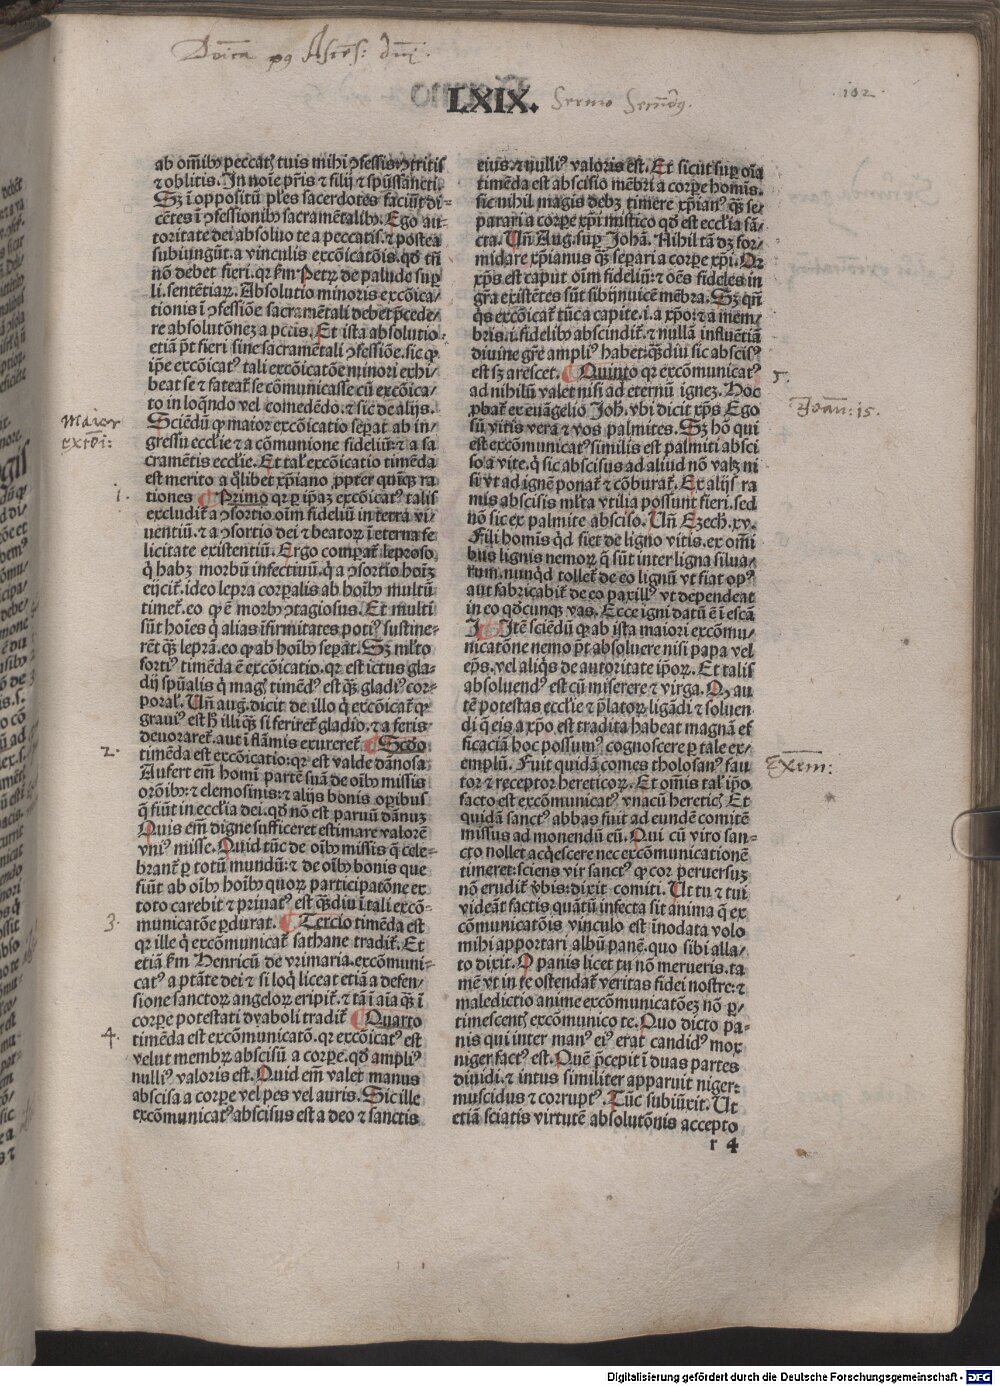 Doīca pꝰ Ascēs: dn̄i.
LXIX. Sermo Secūdꝰ.
102
ab om̄ibꝫ peccatꝭ tuis mihi ꝯfessis, ꝯtritis
⁊ oblitis. In noīe pr̄is ⁊ filij ⁊ sp̄ussancti.
Sꝫ ī oppositū ples sacerdotes faciūt di-
cētes ī ꝯfessionibꝫ sacramētalibꝫ. Ego au-
toritate dei absoluo te a peccatis. ⁊ postea
subiungūt. a vinculis excōicatōis. qđ tn̄
nō debet fieri. qr ẜm Petrꝝ de palude sup̄
li. sententiaꝝ. Absolutio minoris excōica-
tionis ī ꝯfessiōe sacramētali debet p̄cede-
re absolutōneꝫ a pctis. Et ista absolutio
etiā pt̄ fieri sine sacramētali ꝯfessiōe. sic ꝙ
ip̄e excōicatꝰ tali excōicatōe minori exhi-
beat se ⁊ fateat̄ se cōmunicasse cū excōica-
to in loqn̄do vel comedēdo. ⁊ sic de alijs.
Sciēdū ꝙ maior excōicatio sepat̄ ab in-
gressu ecclīe ⁊ a cōmunione fideliū: ⁊ a sa
cramētis ecclīe. Et talꝭ excōicatio timēda
est merito a qͦlibet xp̄iano ꝓpter quinqꝫ ra
tiones Primo qr ꝑ ip̄aꝫ excōicatꝰ talis
excludit̄ a ꝯsortio oīm fideliū in terra vi-
uentiū. ⁊ a ꝯsortio dei ⁊ beatoꝝ ī eterna fe
licitate existentiū. Ergo compat̄ leproso
q̄ habꝫ morbū infectiuū. q̄ a ꝯsortio hoīꝫ
eijcit̄. ideo lepra corꝑalis ab hoībꝫ multū
timet̄. eo ꝙ ē morbꝰ ꝯtagiosus. Et multi
sūt hoīes q̄ alias īfirmitates potiꝰ sustine-
rēt qꝫ leprā. eo ꝙ ab hoībꝫ sepat̄. Sꝫ ml̄to
fortiꝰ timēda ē excōicatio. qr est ictus gla-
dij sp̄ualis q̄ magꝭ timēdꝰ est qꝫ gladiꝰ cor-
poralꝭ. Un̄ aug. dicit de illo q̄ excōicat̄ ꝙ
grauiꝰ est ħ illi qꝫ si feriret̄ gladio. ⁊ a feris
deuoraret̄. aut ī flāmis exureret̄. Scd̄o
timēda est excōicatio: qr est valde dānosa.
Aufert em̄ homī partē suā de oībꝫ missis
orōibꝫ: ⁊ elemosinis: ⁊ alijs bonis oꝑibus
q̄ fiūt in ecclīa dei. qđ nō est paruū dānuꝫ
Quis em̄ digne sufficeret estimare valorē
vniꝰ misse. Quid tūc de oībꝫ missis q̄ cele-
brant̄ ꝑ totū mundū: ⁊ de oībꝫ bonis que
fiūt ab oībꝫ hoībꝫ quoꝝ participatōne ex
toto carebit ⁊ priuatꝰ est qꝫdiu ī tali excō-
municatōne ꝑdurat. Tercio timēda est
qr ille q̄ excōmunicat̄ sathane tradit̄. Et
etiā ẜm Henricū de vrimaria. excōmuni-
catꝰ a ptāte dei ⁊ si loq̄ liceat etiā a defen-
sione sanctoꝝ angeloꝝ eripit̄. ⁊ tā ī aīa qꝫ ī
corꝑe potestati dyaboli tradit̄ Quarto
timēda est excōmunicatō. qr excōicatꝰ est
velut membꝝ abscisū a corꝑe. qđ ampliꝰ
nulliꝰ valoris est. Quid em̄ valet manus
abscisa a corꝑe vel pes vel auris. Sic ille
excōmunicatꝰ abscisus est a deo ⁊ sanctis
eius. ⁊ nulliꝰ valoris est. Et sicut sup̄ oīa
timēda est abscisio mēbri a corꝑe homīs.
sic nihil magis debꝫ timere xp̄ianꝰ qꝫ se-
parari a corꝑe xp̄i mistico qđ est ecclīa sā-
cta. Un̄ Aug. sup̄ Johā. Nihil tā dꝫ for-
midare xp̄ianus qꝫ separi a corꝑe xp̄i. Qr
xp̄s est caput oīm fideliū: ⁊ oēs fideles in
gr̄a existētes sūt sibijnuicē mēbra. Sꝫ qn̄
qͥs excōicat̄ tūc a capite. i. a xp̄o: ⁊ a mem-
bris. i. fidelibꝫ abscindit̄. ⁊ nullā influentiā
diuine gr̄e ampliꝰ habet: qꝫdiu sic abscisꝰ
est sꝫ arescet. Quinto qr excōmunicatꝰ
ad nihilū valet nisi ad eternū igneꝫ. Hoc
ꝓbat̄ ex euāgelio Joh̄. vbi dicit xp̄s Ego
sū vitis vera ⁊ vos palmites. Sꝫ hō qui
est excōmunicatꝰ similis est palmiti absci
so a vite. q̄ sic abscisus ad aliud nō valꝫ ni
si vt ad ignē ponat̄ ⁊ cōburat̄. Ex alijs ra
mis abscisis ml̄ta vtilia possunt fieri. sed
nō sic ex palmite absciso. Un̄ Ezech. xv.
Fili homis qͥd fiet de ligno vitis. ex om̄i
bus lignis nemoꝝ q̄ sūt inter ligna silua-
rum. nunqͥd tollet̄ de eo lignū vt fiat opꝰ
aut fabricabit̄ de eo paxillꝰ vt dependeat
in eo qđcunqꝫ vas. Ecce igni datū ē ī escā
Itē sciēdū ꝙ ab ista maiori excōmu-
nicatōne nemo pt̄ absoluere nisi papa vel
ep̄s. vel aliqͥs de autoritate ip̄oꝝ. Et talis
absoluendꝰ est cū miserere ⁊ virga. Qꝫ au
tē potestas ecclīe ⁊ p̄latoꝝ ligādi ⁊ soluen
di q̄ eis a xp̄o est tradita habeat magnā ef
ficaciā hoc possumꝰ cognoscere ꝑ tale ex-
emplū. Fuit quidā comes tholosanꝰ fau
tor ⁊ receptor hereticoꝝ. Et om̄is tal̄ ip̄o
facto est excōmunicatꝰ vnacū hereticꝭ Et
quidā sanctꝰ abbas fuit ad eundē comitē
missus ad monendū eū. Qui cū viro san-
cto nollet acqͥescere nec excōmunicationē
timeret: sciens vir sanctꝰ ꝙ cor ꝑuersuꝫ
nō erudit̄ v̄bis: dixit comiti. Ut tu ⁊ tui
videāt factis quātū infecta sit anima q̄ ex
cōmunicatōis vinculo est īnodata volo
mihi apportari albū panē. quo sibi alla-
to dixit. O panis licet tu nō merueris. ta
mē vt in te ostendat̄ veritas fidei nostre: ⁊
maledictio anime excōmunicatōeꝫ nō ꝑ-
timescentꝭ excōmunico te. Quo dicto pa-
nis qui inter manꝰ eiꝰ erat candidꝰ mox
niger factꝰ est. Quē p̄cepit ī duas partes
diuidi. ⁊ intus similiter apparuit niger:
muscidus ⁊ corruptꝰ. Tūc subiūxit. Ut
etiā sciatis virtutē absolutōnis accepto
r 4
Maior
exc̄oi:
1.
2.
3.
4.
5.
Joan̄: 15.
Exēm:
Digitalisierung gefördert durch die Deutsche Forschungsgemeinschaft - DFG